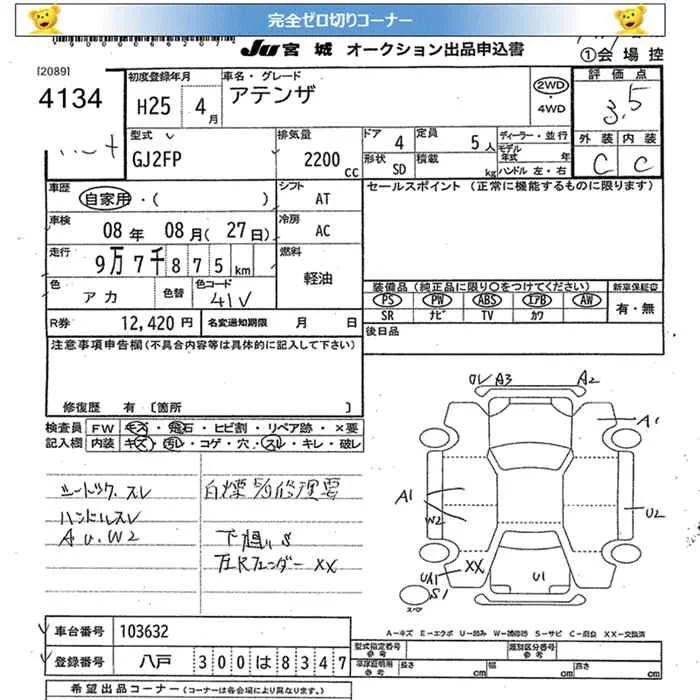 完全ゼロ切りコーナー
JU 宮城 オークション出品申込書
①会場控
[2089]
4134
初度登録年月
H25 4月
車名・グレード
アテンザ
2WD
・
4WD
評価点
3.5
外装 内装
C C
型式
GJ2FP
排気量
2200
cc
ドア 4
定員 5人
形状 SD
積載 kg
ディーラー・並行
モデル年式 年
ハンドル 左・右
車歴
自家用・( )
シフト AT
セールスポイント (正常に機能するものに限ります)
車検
08年 08月(27日)
冷房 AC
走行
9万7千875km
燃料
軽油
色
アカ
色替
色コード
41V
装備品(純正品に限り○をつけてください)
新車保証書
PS PW ABS エアB AW
有・無
SR ナビ TV カワ
R券 12,420円
名変通知期限 月 日
後日品
注意事項申告欄(不具合内容等は具体的に記入して下さい)
修復歴 有 [箇所 ]
検査員
記入欄
FW キズ・飛石・ヒビ割・リペア跡・×要
内装 キズ・汚レ・コゲ・穴・スレ・キレ・破レ
ハンドルスレ
A U. W2
A3
A2
A1
A1
W2
U2
XX
U1
S1
スペア
A-キズ E-エクボ U-凹み W-補修跡 S-サビ C-腐食 XX-交換済
車台番号 103632
登録番号 八戸 300は8347
型式指定番号
参考
類別区分番号
参考
車庫証明用
参考
長さ cm
幅 cm
高さ cm
希望出品コーナー(コーナーは各会場により異なります。)